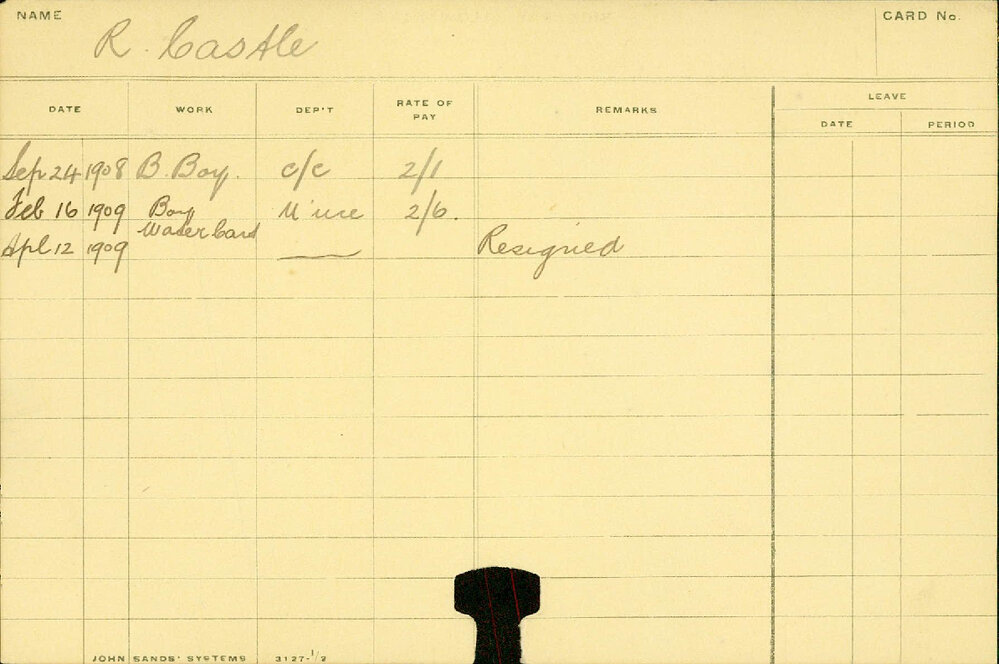 NAME
R. Castle
CARD No.
DATE WORK DEP'T RATE OF PAY REMARKS LEAVE
DATE PERIOD
Sep 24 1908 B. Boy. c/c 2/1
Feb 16 1909 Boy Water Cart 2/6.
Apl 12 1909 Resigned
JOHN SANDS' SYSTEMS 3127-1/2